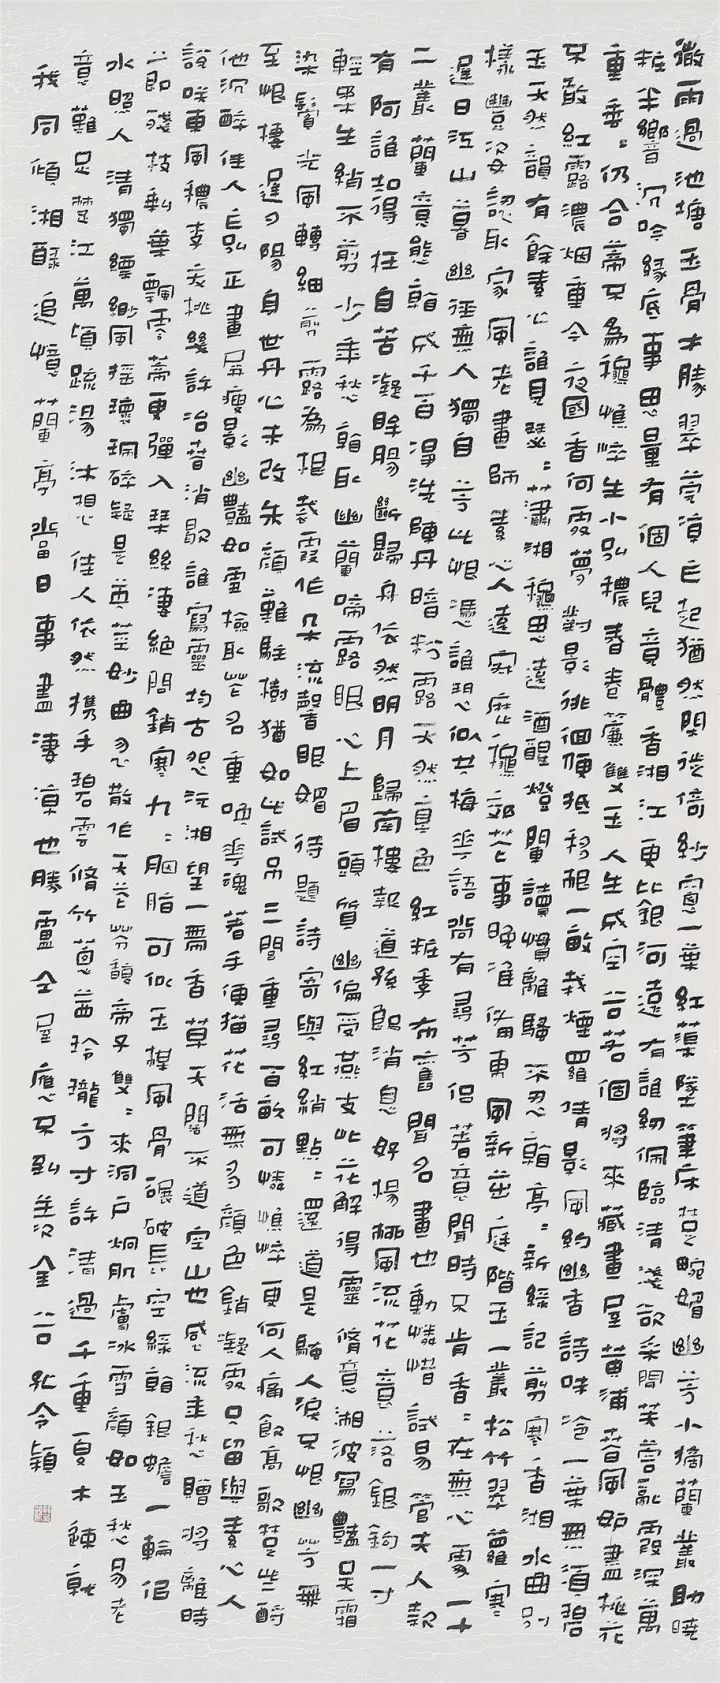 微雨過池塘玉骨才勝翠葆涼亡起猶然閑徙倚紗窗一葉紅蕖墜筆床楚畹媚幽芳小摘蘭叢助曉
粧半嚮沉吟緣底事思量有個人兒竟體香湘江更比銀河遠有誰紉佩臨清淺欲采閒芙蓉亂霞深萬
重垂垂仍合蒂只為穠憔悴生小弘穠春卷簾雙玉人生成空谷若個將來藏畫屋黃浦春風姤盡桃花
只敢紅露濃烟重今夜國香何處夢對影徘徊便抵移根一畝栽煙羅倩影風約幽香詩味冷一葉無須碧
玉天然韻有餘素心誰見瑟瑟蕭湘穠思遠酒醒燈闌讀慣離騷不忍翦亭亭新綠記翦寒香湘水曲別
樣豐姿認取家風老畫師素心人遠寂歷穠郊花事晚准備東風新茁庭階玉一叢松竹翠蘿寒
遲日江山暮幽徑無人獨自芳此恨憑誰訴似共梅花語尚有尋芳侶著意聞時只肯香香在無心處一十
二叢蘭意態翦成千百淨洗鉛丹暗粉露天然真色紅粧季布舊聞名畫也動憐惜試易管夫人款
有阿誰知得枉自苦凝眸腸斷歸舟依然明月歸南樓報道孫郎消息好楊柳風流花意落銀鉤一寸
輕柔生綃不剪少年愁翦取幽蘭啼露眼心上眉頭質幽偏受燕支此花解得靈脩意湘波寫豔吳霜
染鬢光風轉細翦露為裾裁霞作朵流馨眼媚待題詩寄與紅綃點點還道是騷人淚只恨幽芳無
至恨摟遲夕陽身世丹心未改朱顏難駐樹猶如此試弔三閭重尋百畝可憐憔悴更何人痛飲高歌楚些酹
他沉醉佳人亡弘正畫屏瘦影幽豔如雪檢取花名重喚花魂著手便描花活無多顏色銷凝處只留與素心人
說咲東風穠李夭桃幾許冶春消歇誰寫靈均古怨沅湘望一霧香草天闊不道空山也感流年愁贈將離時
節殘枝剩葉飄零蒂更彈入琴絲淒絕問銷寒九九胭脂可似玉樓風骨碾破長空綠翦銀蟾一輪侶
水照人清獨縹緲風搖環珮碎疑是英莖妙曲忽散作天花芬馥帝子雙雙來洞戶炯肌膚冰雪顏如玉愁易老
意難足楚江萬頃疏湯沐想佳人依然攜手碧雲脩竹蔥茜玲瓏方寸許清過千重夏木速就
我同傾湘醁追憶蘭亭當日事盡淒涼也勝盧仝屋應只到羨金谷孔令穎